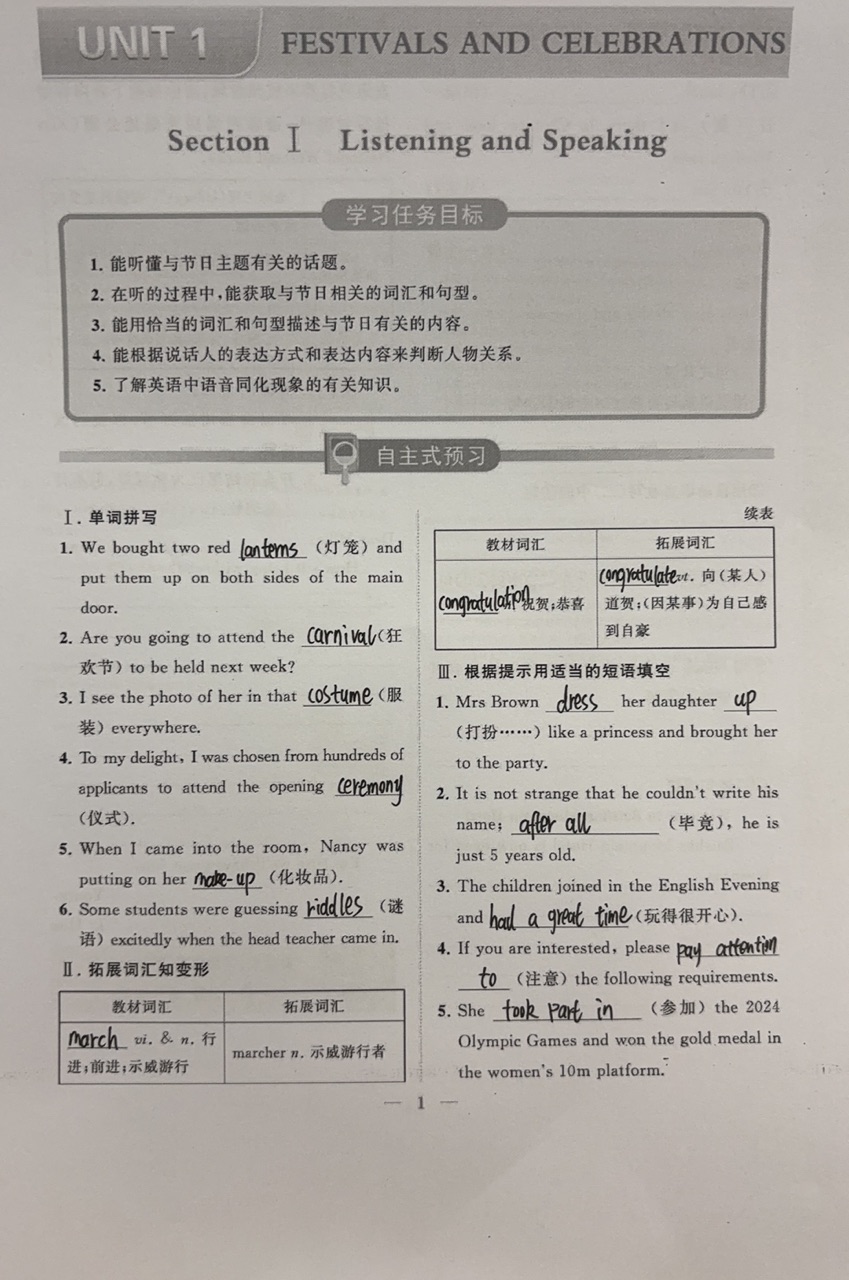 UNIT 1 FESTIVALS AND CELEBRATIONS
Section Ⅰ Listening and Speaking
学习任务目标
1. 能听懂与节日主题有关的话题。
2. 在听的过程中,能获取与节日相关的词汇和句型。
3. 能用恰当的词汇和句型描述与节日有关的内容。
4. 能根据说话人的表达方式和表达内容来判断人物关系。
5. 了解英语中语音同化现象的有关知识。
自主式预习
Ⅰ. 单词拼写
1. We bought two red lanterns (灯笼) and
put them up on both sides of the main
door.
2. Are you going to attend the carnival (狂
欢节) to be held next week?
3. I see the photo of her in that costume (服
装) everywhere.
4. To my delight, I was chosen from hundreds of
applicants to attend the opening ceremony
(仪式).
5. When I came into the room, Nancy was
putting on her make-up (化妆品).
6. Some students were guessing riddles (谜
语) excitedly when the head teacher came in.
Ⅱ. 拓展词汇知变形
教材词汇 拓展词汇
march vi. & n. 行
进;前进;示威游行
marcher n. 示威游行者
续表
教材词汇 拓展词汇
congratulation 祝贺;恭喜
congratulate vt. 向(某人)
道贺;(因某事)为自己感
到自豪
Ⅲ. 根据提示用适当的短语填空
1. Mrs Brown dress her daughter up
(打扮……) like a princess and brought her
to the party.
2. It is not strange that he couldn't write his
name; after all (毕竟), he is
just 5 years old.
3. The children joined in the English Evening
and had a great time (玩得很开心).
4. If you are interested, please pay attention
to (注意) the following requirements.
5. She took part in (参加) the 2024
Olympic Games and won the gold medal in
the women's 10m platform.
— 1 —